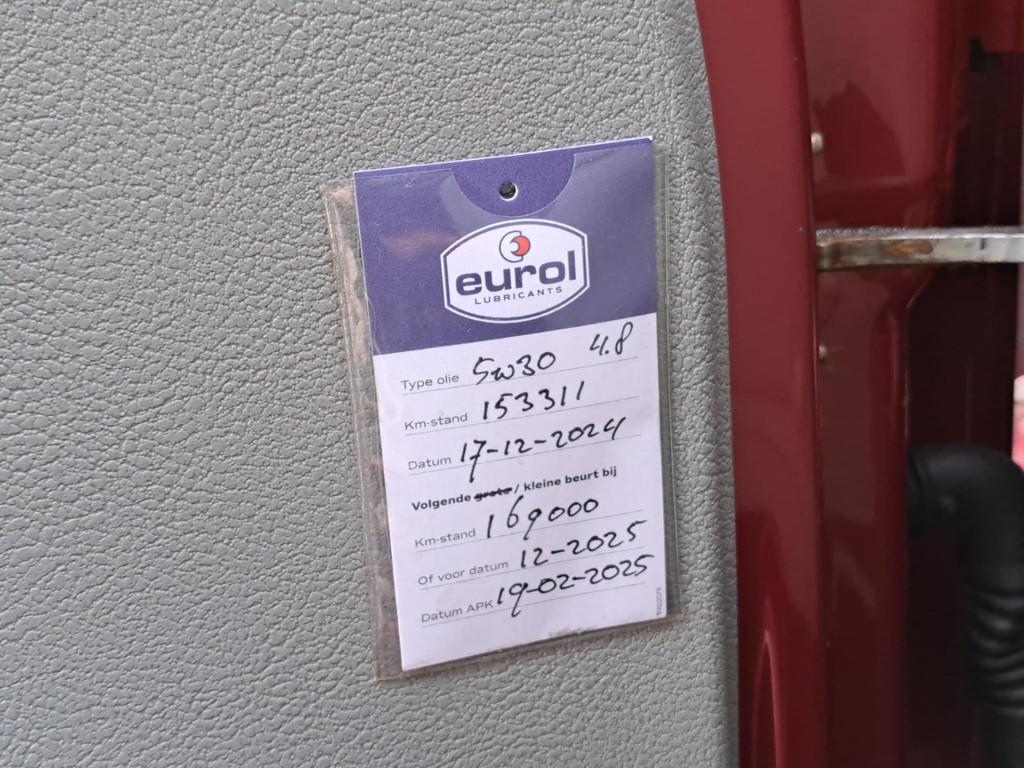 eurol
LUBRICANTS
Type olie 5w30 4.8
Km-stand 153311
Datum 17-12-2024
Volgende grote / kleine beurt bij
Km-stand 169000
Of voor datum 12-2025
Datum APK 19-02-2025